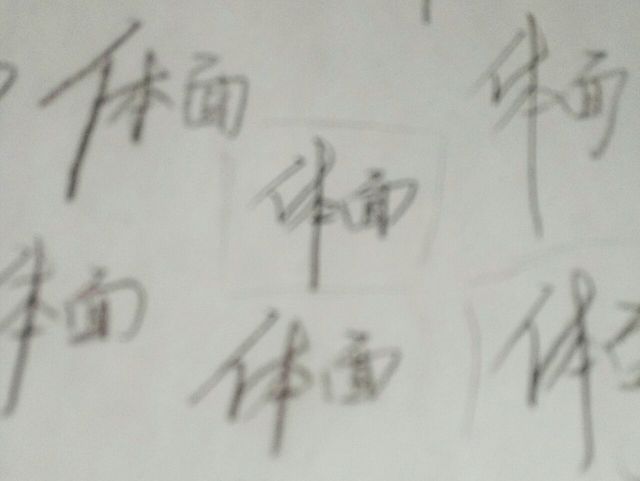 体面
体面
体面
体面
体面
体